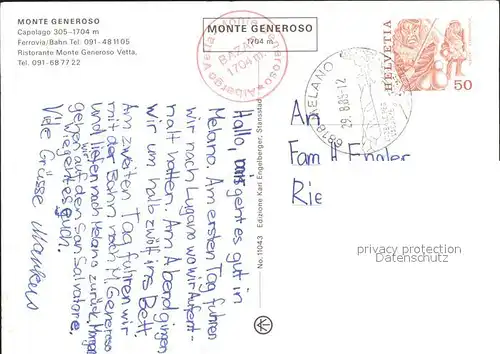 MONTE GENEROSO
Capolago 305-1704 m
Ferrovia/Bahn Tel. 091-48 11 05
Ristorante Monte Generoso Vetta,
Tel. 091-68 77 22
MONTE GENEROSO
1704 m
Albergo Vetta Monte Generoso
BAZAR
1704 m.
6818 MELANO
29.8.85-12
HELVETIA
50
Hallo, uns gent es gut in
Melano. Am ersten Tag fuhren
wir nach Lugano wo wir Aufent-
nalt hatten. Am Abend gingen
wir um halb zwölf ins Bett.
Am zweiten Tag fuhren wir
mit der Bahn nach M. Generoso
und liefen nach Melano zurück. Morgen
gehen wir auf den San Salvatore.
Wie geht es euch.
Viele Grüsse Markus
No. 11043 Edizione Karl Engelberger, Stansstad
An
Fam H Engler
Rie
privacy protection
Datenschutz